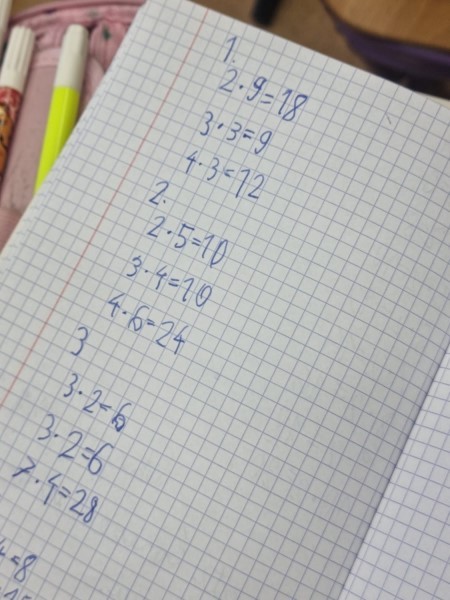 1.
2·9=18
3·3=9
4·3=12
2.
2·5=10
3·4=10
4·6=24
3
3·2=6
3·2=6
7·4=28
4=8